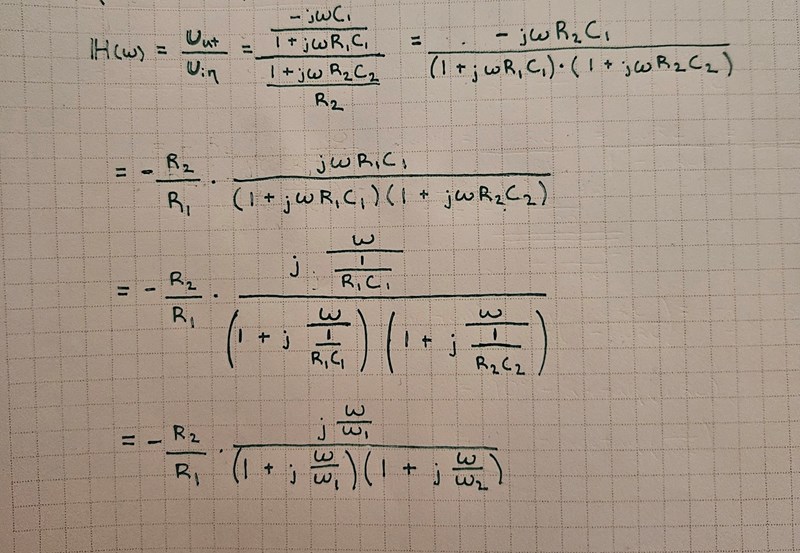 ℍ(ω) = Uut/Uin = (-jωC₁/(1+jωR₁C₁))/((1+jωR₂C₂)/R₂) = -jωR₂C₁/((1+jωR₁C₁)·(1+jωR₂C₂))
= - R₂/R₁ · jωR₁C₁/((1+jωR₁C₁)(1+jωR₂C₂))
= - R₂/R₁ · (j · ω/(1/(R₁C₁)))/((1+j ω/(1/(R₁C₁)))(1+j ω/(1/(R₂C₂))))
= - R₂/R₁ · (j ω/ω₁)/((1+j ω/ω₁)(1+j ω/ω₂))